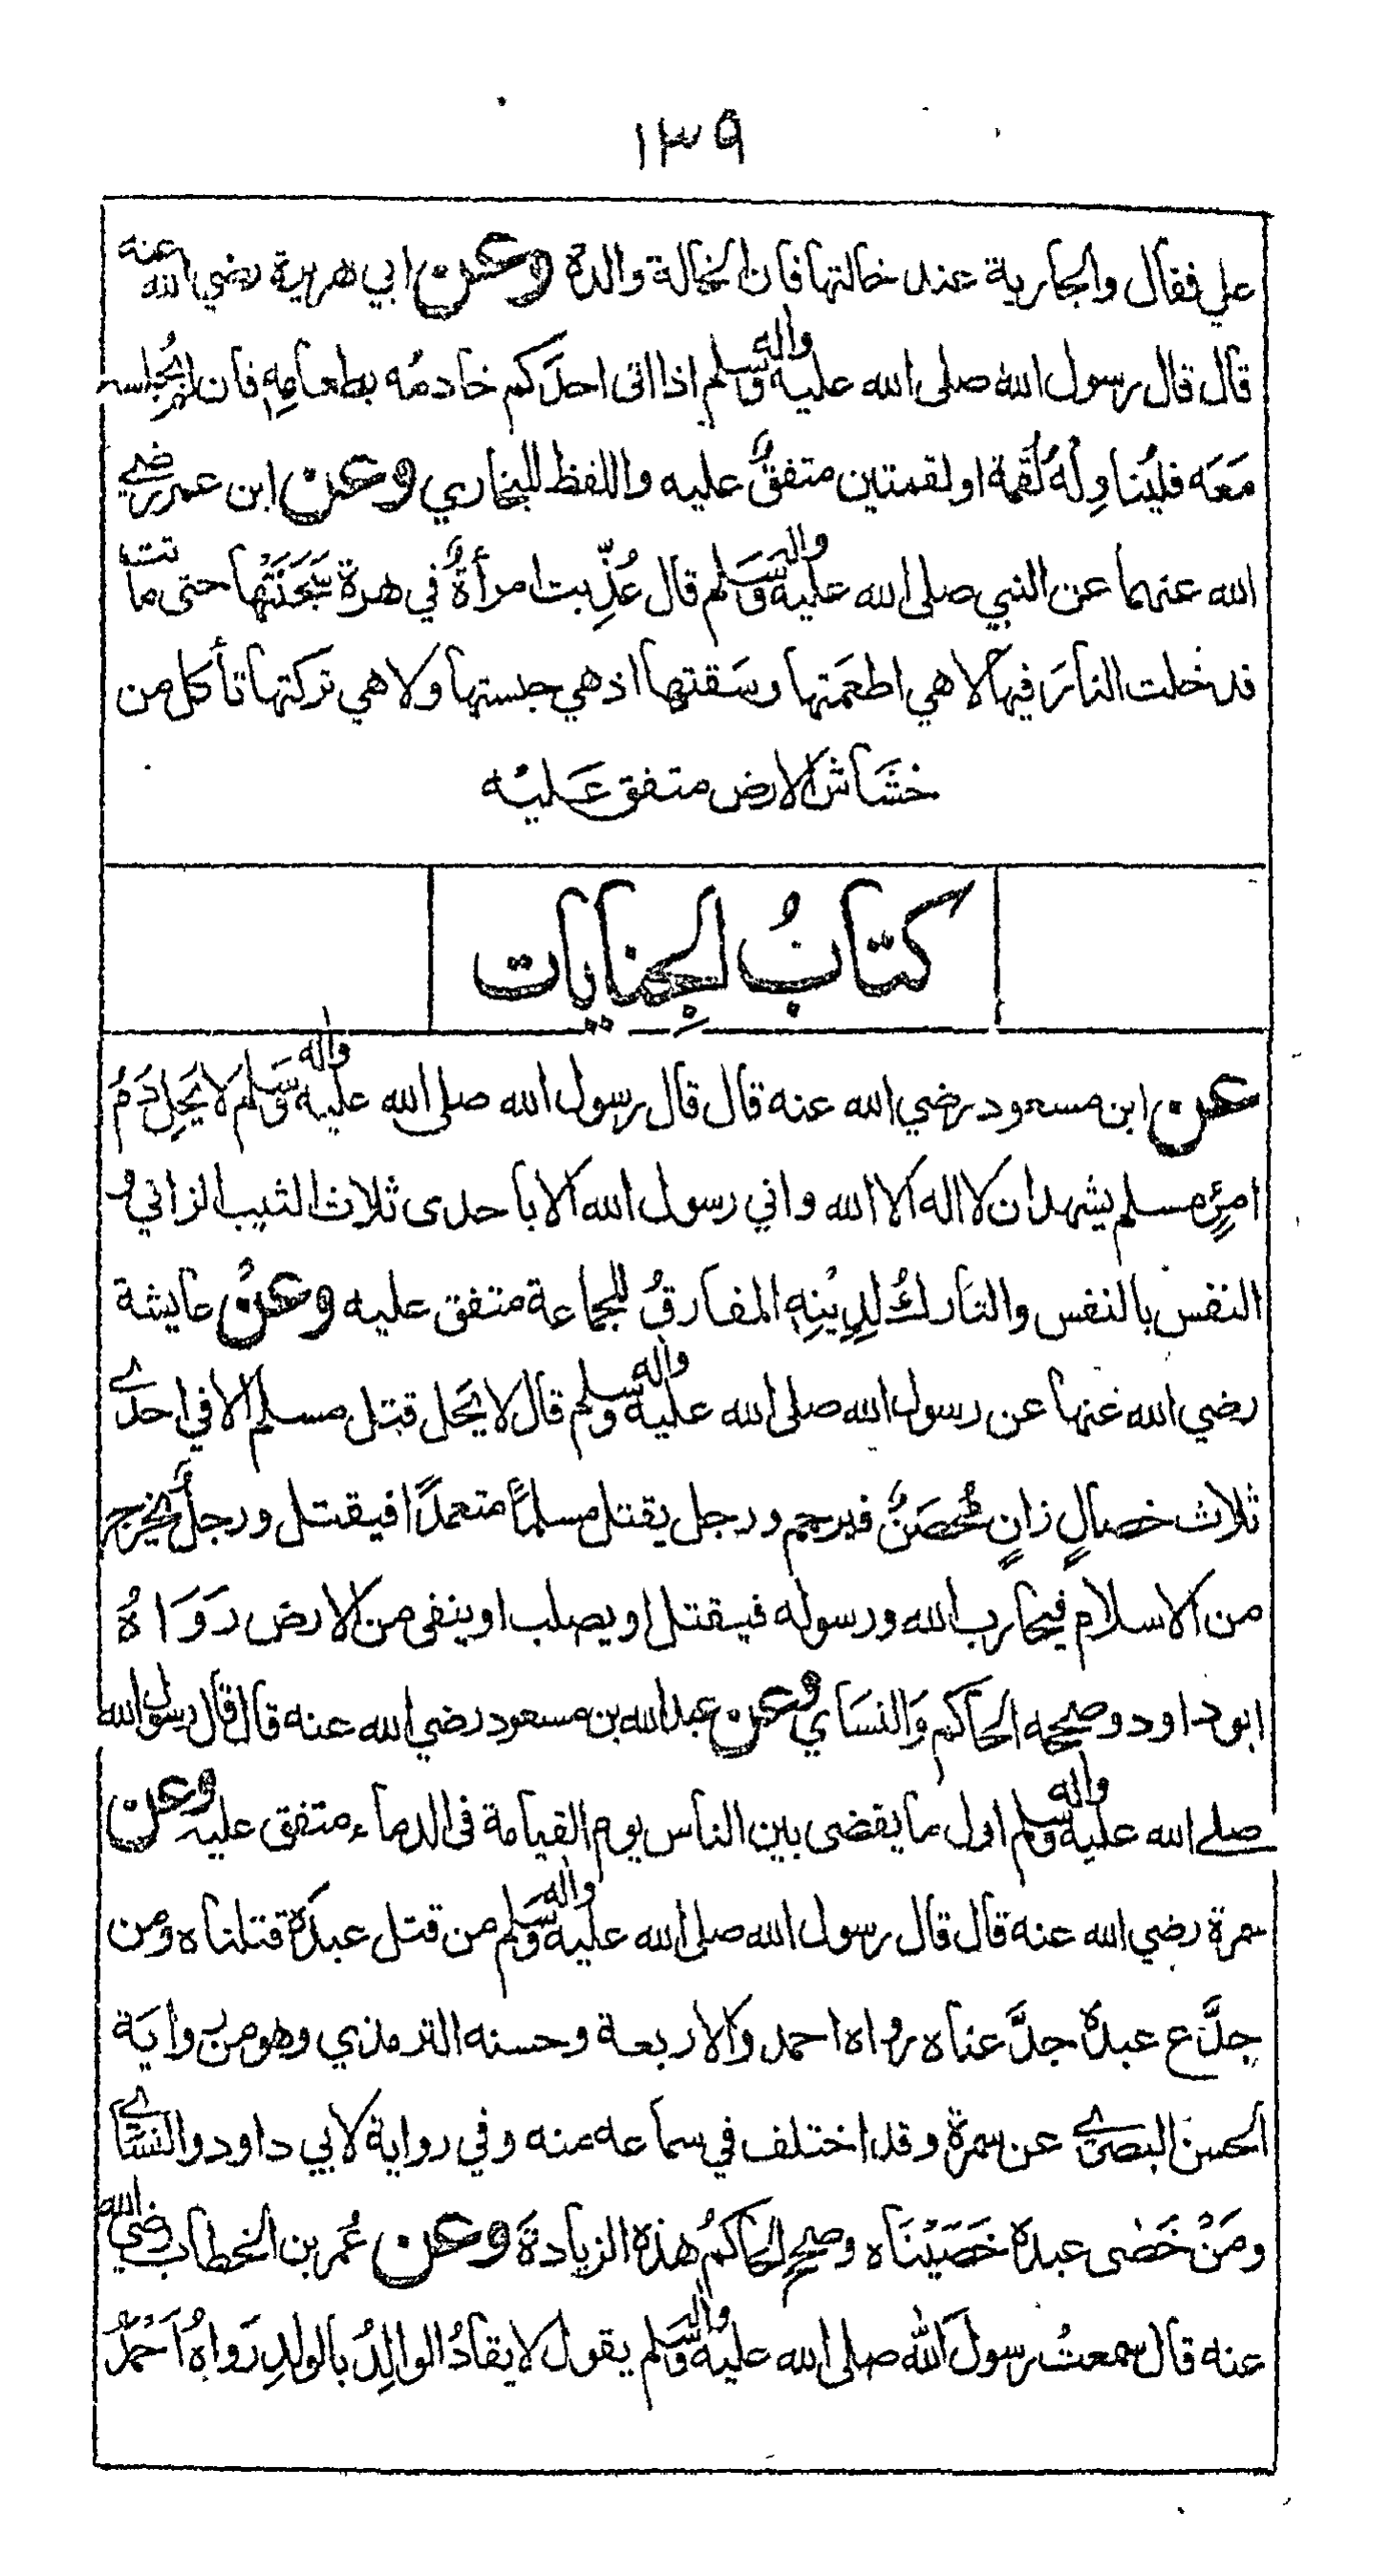 ١٣٩
علي فقال والجارية عند خالتها فان الخالة والدة وعن ابي هريرة رضي الله عنه
قال قال رسول الله صلى الله عليه واله وسلم اذا اتى احدَكم خادمُه بطعامِهِ فان لم يُجلسه
مَعَه فليُناوِلْهُ لُقمة او لقمتين متفقٌ عليه واللفظ للبخاري وعن ابن عمر رضي
الله عنهما عن النبي صلى الله عليه واله وسلم قال عُذِّبت امرأةٌ في هرة سَجَنَتْها حتى ماتت
فدخلت النارَ فيها لا هي اطعَمتها وسَقتها اذ هي حبستها ولا هي تركتها تأكل من
خشَاش الارض متفق عَليْه
كتابُ الجِنايات
عن ابن مسعود رضي الله عنه قال قال رسول الله صلى الله عليه واله وسَلم لا يَحِل دَمُ
امرئٍ مسلم يشهد ان لا اله الا الله واني رسول الله الا باحدى ثلاث الثيب الزاني و
النفس بالنفس والتاركُ لدِيْنِهِ المفارقُ للجماعة متفق عليه وعنْ عايشة
رضي الله عنها عن رسول الله صلى الله عليه واله وسلم قال لا يَحل قتل مسلم الا في احدى
ثلاث خصالٍ زانٍ مُحصَنٌ فيرجم ورجل يقتل مسلمًا متعمدًا فيقتل ورجلٌ يخرج
من الاسلام فيحارب الله ورسوله فيقتل او يصلب او ينفى من الارض رَوَاهُ
ابو داود وصححه الحاكم وَالنسَاي وعن عبد الله بن مسعود رضي الله عنه قال قال رسول الله
صلى الله عليه واله وسلم اول ما يقضى بين الناس يوم القيامة في الدماء متفق عليه وعن
سمرة رضي الله عنه قال قال رسول الله صلى الله عليه واله وسَلم من قتل عبدَه قتلناه ومن
جدَّع عبدَه جدَّعناه رواه احمد والاربعة وحسنه الترمذي وهو من رواية
الحسن البصري عن سمرة وقد اختلف في سماعه منه وفي رواية لابي داود والنسَاي
ومَنْ خَصٰى عبده خَصَيْنَاه وصحح الحاكمُ هذه الزيادةَ وعن عُمر بن الخطاب رضي الله
عنه قال سمعتُ رسولَ الله صلى الله عليه واله وسَلم يقول لا يقادُ الوالِدُ بالولدِ رَواهُ اَحْمَدُ